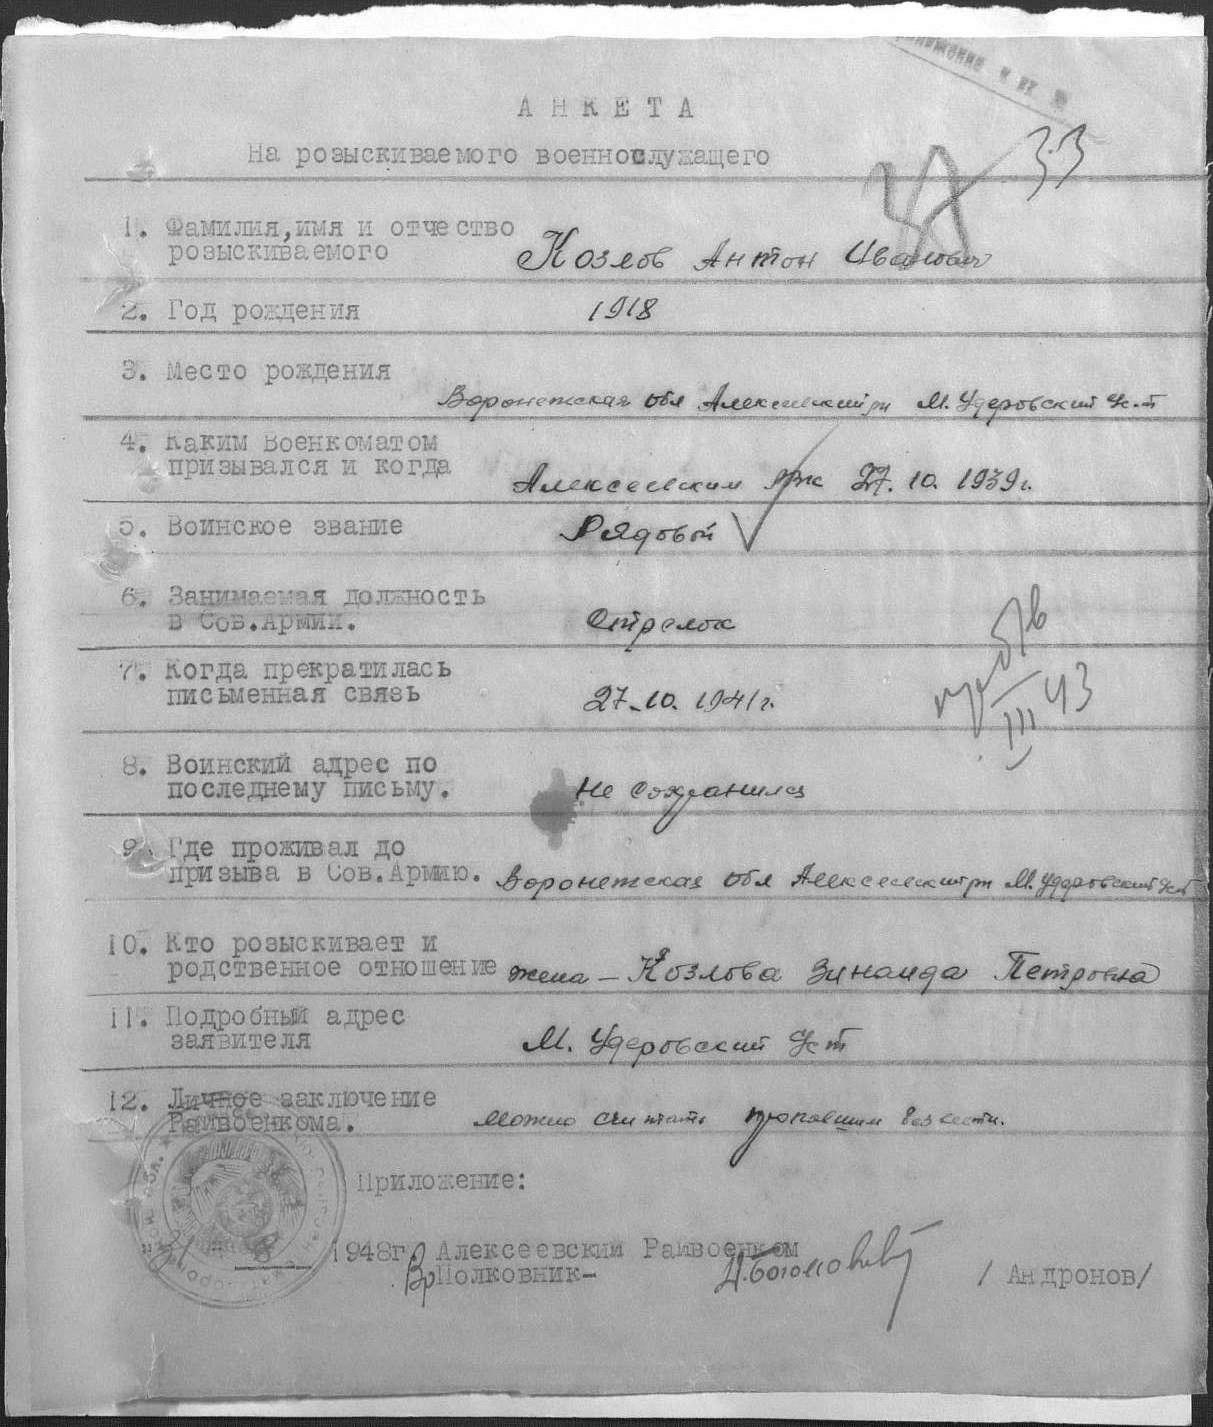 АНКЕТА
33
На розыскиваемого военнослужащего
1. Фамилия,имя и отчество
розыскиваемого Козлов Антон Иванович
2. Год рождения 1918
3. Место рождения
Воронежская обл Алексеевский рн М. Удеровский с-т
4. Каким Военкоматом
призывался и когда
Алексеевским рвк 27.10.1939г.
5. Воинское звание Рядовой
6. Занимаемая должность
в Сов.Армии. Стрелок
7. Когда прекратилась
письменная связь 27.10.1941г.
8. Воинский адрес по
последнему письму. Не сохранился
9. Где проживал до
призыва в Сов.Армию. Воронежская обл Алексеевский рн М. Удеровский
10. Кто розыскивает и
родственное отношение жена – Козлова Зинаида Петровна
11. Подробный адрес
заявителя М. Удеровский с-т
12. Личное заключение
Райвоенкома. можно считать пропавшим без вести.
III 43
Приложение:
"31" 8 1948г. Алексеевский Райвоенком
Вр Полковник- /Андронов/